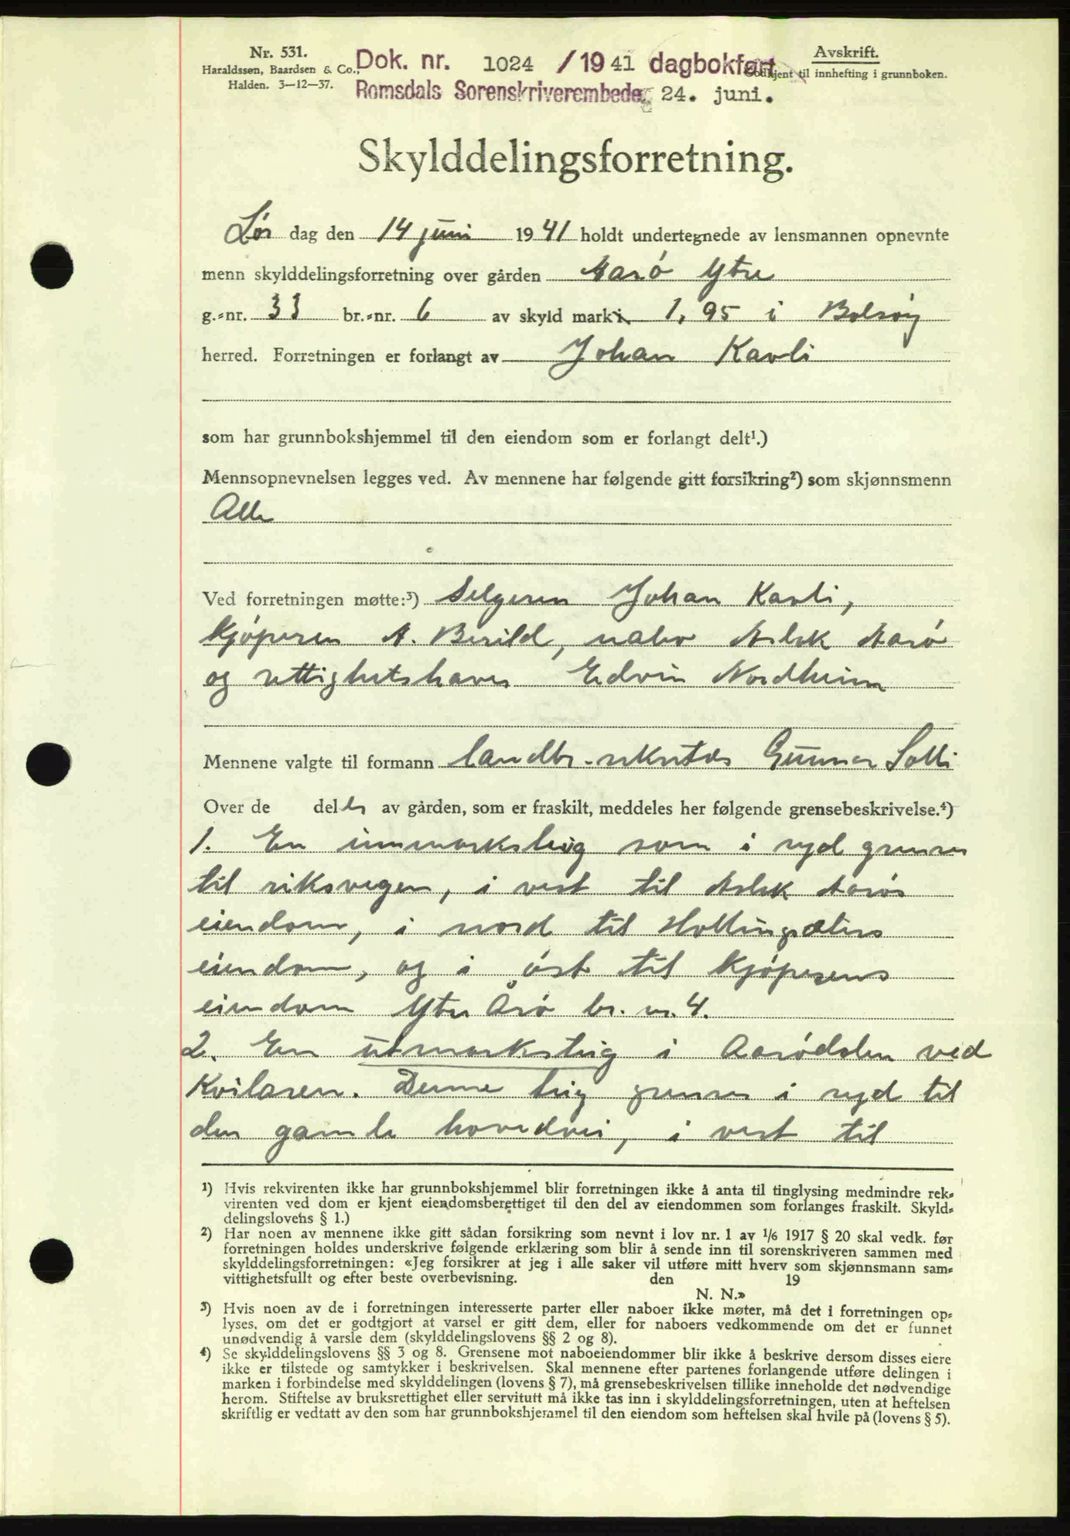 Nr. 531.
Haraldssen, Baardsen & Co.,
Halden. 3-12-37.
Dok. nr. 1024 /1941 dagbokført
Romsdals Sorenskriverembede 24. juni.
Avskrift.
Godkjent til innhefting i grunnboken.
Skylddelingsforretning.
Lør dag den 14 juni 1941 holdt undertegnede av lensmannen opnevnte
menn skylddelingsforretning over gården Aarø Ytre
g.-nr. 33 br.-nr. 6 av skyld mark 1,95 i Bolsøy
herred. Forretningen er forlangt av Johan Kavli
som har grunnbokshjemmel til den eiendom som er forlangt delt¹.)
Mennsopnevnelsen legges ved. Av mennene har følgende gitt forsikring²) som skjønnsmenn
Alle
Ved forretningen møtte:³) Selgeren Johan Kavli,
Kjøperen A. Berild, nabo Aslak Aarø
og rettighetshaver Edvin Nordheim
Mennene valgte til formann landbr.-sekretær Gunnar Solli
Over de delte av gården, som er fraskilt, meddeles her følgende grensebeskrivelse.⁴)
1. En innmarksteig som i syd grenser
til riksvegen, i vest til Aslak Aarøs
eiendom, i nord til Hollingsæters
eiendom, og i øst til kjøperens
eiendom Ytre Årø br. nr. 4.
2. En utmarksteig i Aarødalen ved
Kvilaren. Denne teig grenser i syd til
den gamle hovedvei, i vest til
¹) Hvis rekvirenten ikke har grunnbokshjemmel blir forretningen ikke å anta til tinglysing medmindre rek-
virenten ved dom er kjent eiendomsberettiget til den del av eiendommen som forlanges fraskilt. Skyld-
delingslovens § 1.)
²) Har noen av mennene ikke gitt sådan forsikring som nevnt i lov nr. 1 av 1/6 1917 § 20 skal vedk. før
forretningen holdes underskrive følgende erklæring som blir å sende inn til sorenskriveren sammen med
skylddelingsforretningen: «Jeg forsikrer at jeg i alle saker vil utføre mitt hverv som skjønnsmann sam-
vittighetsfullt og efter beste overbevisning. den 19
N. N.»
³) Hvis noen av de i forretningen interesserte parter eller naboer ikke møter, må det i forretningen op-
lyses, om det er godtgjort at varsel er gitt dem, eller for naboers vedkommende om det er funnet
unødvendig å varsle dem (skylddelingslovens §§ 2 og 8).
⁴) Se skylddelingslovens §§ 3 og 8. Grensene mot naboeiendommer blir ikke å beskrive dersom disses eiere
ikke er tilstede og samtykker i beskrivelsen. Skal mennene efter partenes forlangende utføre delingen i
marken i forbindelse med skylddelingen (lovens § 7), må grensebeskrivelsen tillike inneholde det nødvendige
herom. Stiftelse av bruksrettighet eller servitutt må ikke tas inn i skylddelingsforretningen, uten at heftelsen
skriftlig er vedtatt av den som har grunnbokshjemmel til den eiendom som heftelsen skal hvile på (lovens § 5).